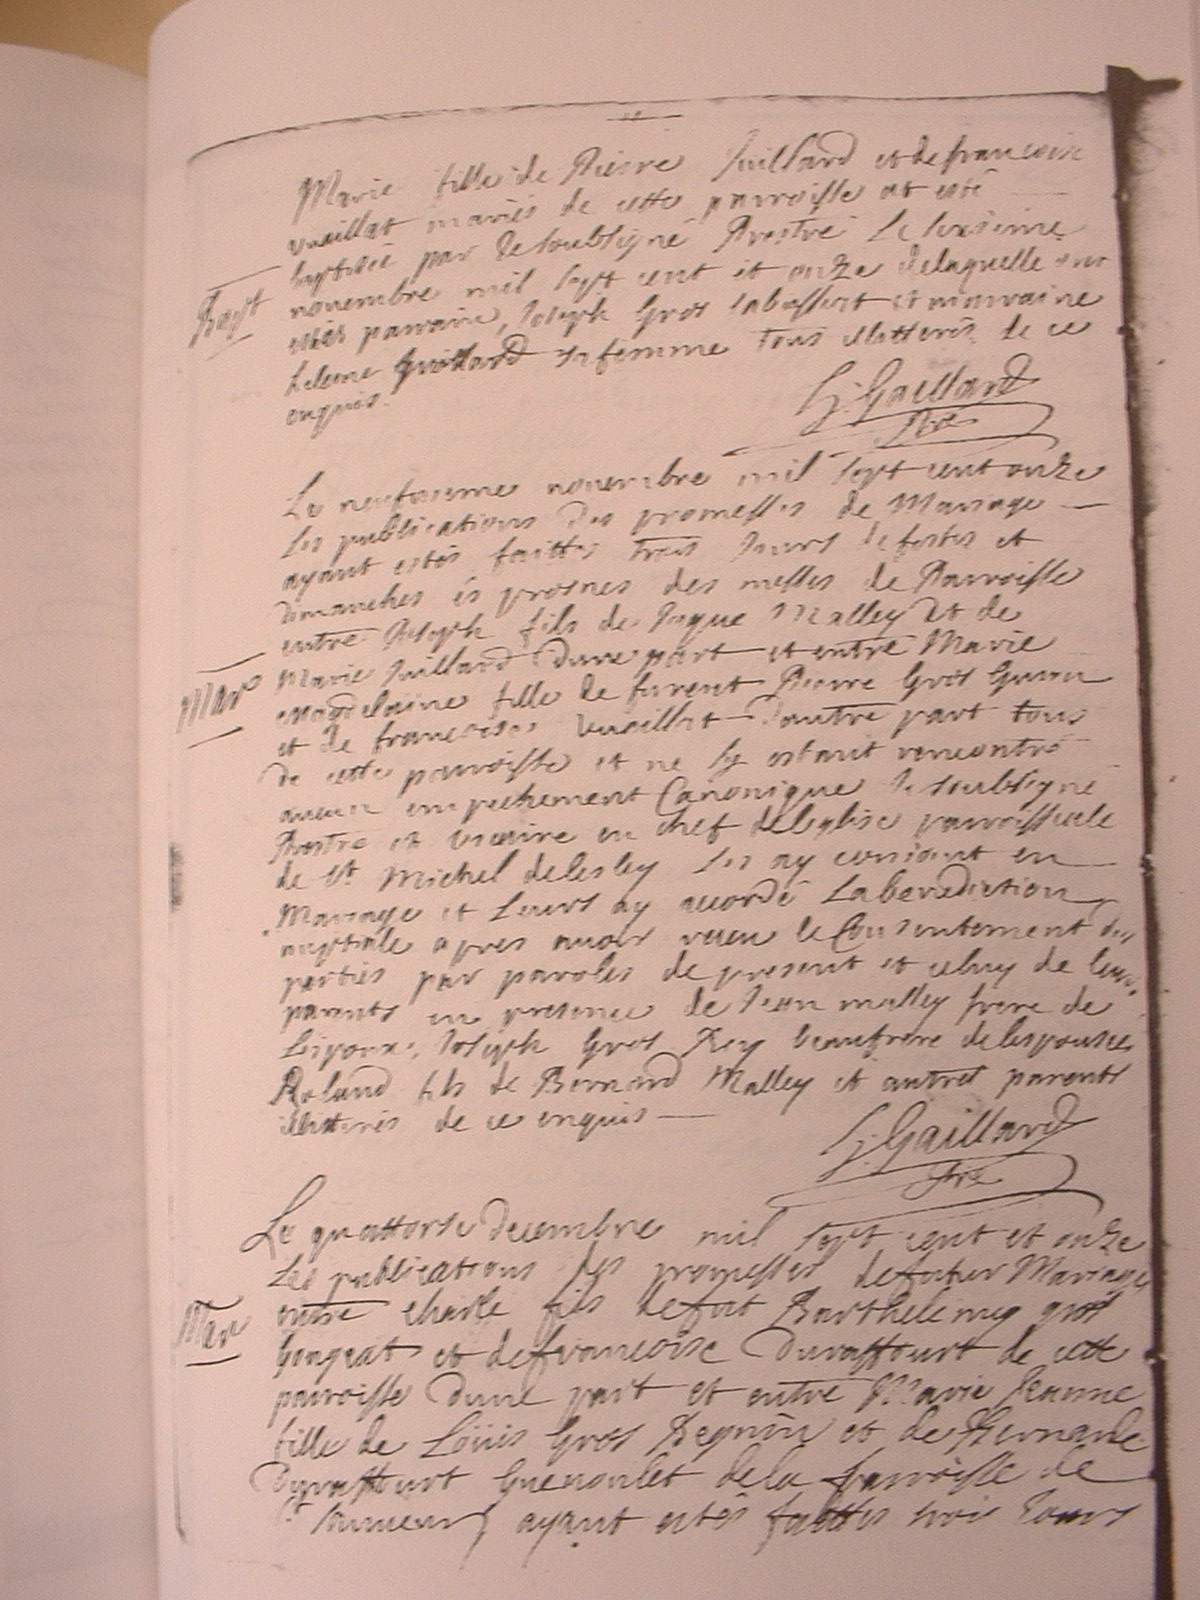 Marie fille de Pierre Juilliard et de francoise
vuaillat mariés de cette parroisse at esté
baptisée par Ie soubsigné Prestre Le
Bapt
novembre mil sept cent et onze delaquelle ont
estés parrain, Joseph Gros et marraine
helene safemme tous illitterés de ce
enquis.
G: Gaillard
Ptre
Le neufvieme novembre mil sept cent onze
Les publications des promesses de Mariage
ayant estés faittes trois Jours de festes et
dimanches és prosnes des messes de Parroisse
entre Joseph fils de Jaque Malley et de
Marie Juillard dune part et entre Marie
Mar
magdelaine fille de furent Pierre Gros
et de francoise Vuaillat dautre part tous
de cette parroisse et ne sy estant rencontré
aucun empechement Canonique Ie soubsigné
Prestre et vicaire en chef deleglise parroissiale
de St Michel de Lesley Les ay conjoint en
Mariage et Leurs ay accordé Labenediction
nuptiale apres avoir receu le Consentement des
parties par paroles de present et celuy de leurs
parents en presence de Jean malley frere de
Lepoux, Joseph Gros Rey beaufrere delespouse
Roland fils de Bernard Malley et autres parents
illitterés de ce enquis
G: Gaillard
Ptre
Le quattorse decembre mil sept cent et onze
Les publications des promesses defutur Mariage
Mar
entre Charle fils defut Barthelemy gros
et defrancoise Duraffourt de cette
parroisse dune part et entre Marie Jeanne
fille de Loüis Gros et de Bernarde
Duraffourt dela parroisse de
St ayant estés faittes trois Jours